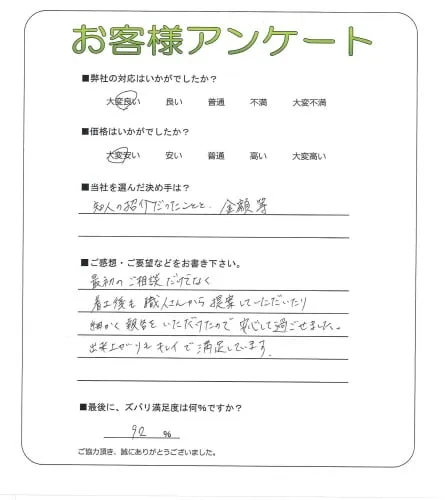 お客様アンケート
■弊社の対応はいかがでしたか？
大変良い 良い 普通 不満 大変不満
■価格はいかがでしたか？
大変安い 安い 普通 高い 大変高い
■当社を選んだ決め手は？
知人の紹介だったことと、金額等
■ご感想・ご要望などをお書き下さい。
最初のご相談だけでなく
着工後も職人さんから提案していただいたり
細かく報告をいただけたので安心して過ごせました。
出来上がりもキレイで満足しています。
■最後に、ズバリ満足度は何%ですか？
92 %
ご協力頂き、誠にありがとうございました。